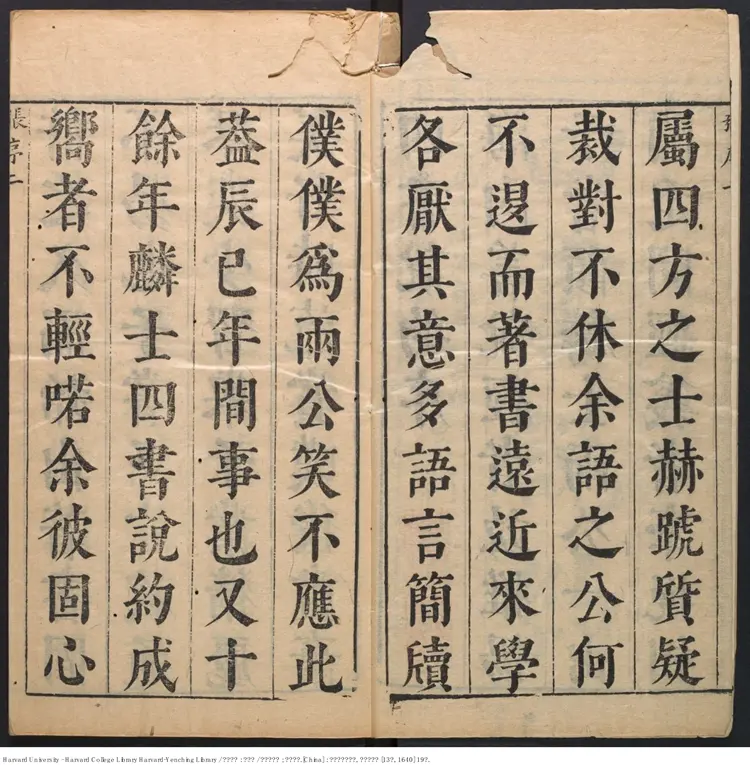 屬四方之士赫蹏質疑
裁對不休余語之公何
不遑而著書遠近來學
各厭其意多語言簡牘
僕僕爲兩公笑不應此
葢辰巳年間事也又十
餘年麟士四書說約成
嚮者不輕喏余彼固心
張序二
Harvard University - Harvard College Library Harvard-Yenching Library / ???? : ??? / ????? ; ????.[China] : ???????, ????? [13?, 1640] 19?.